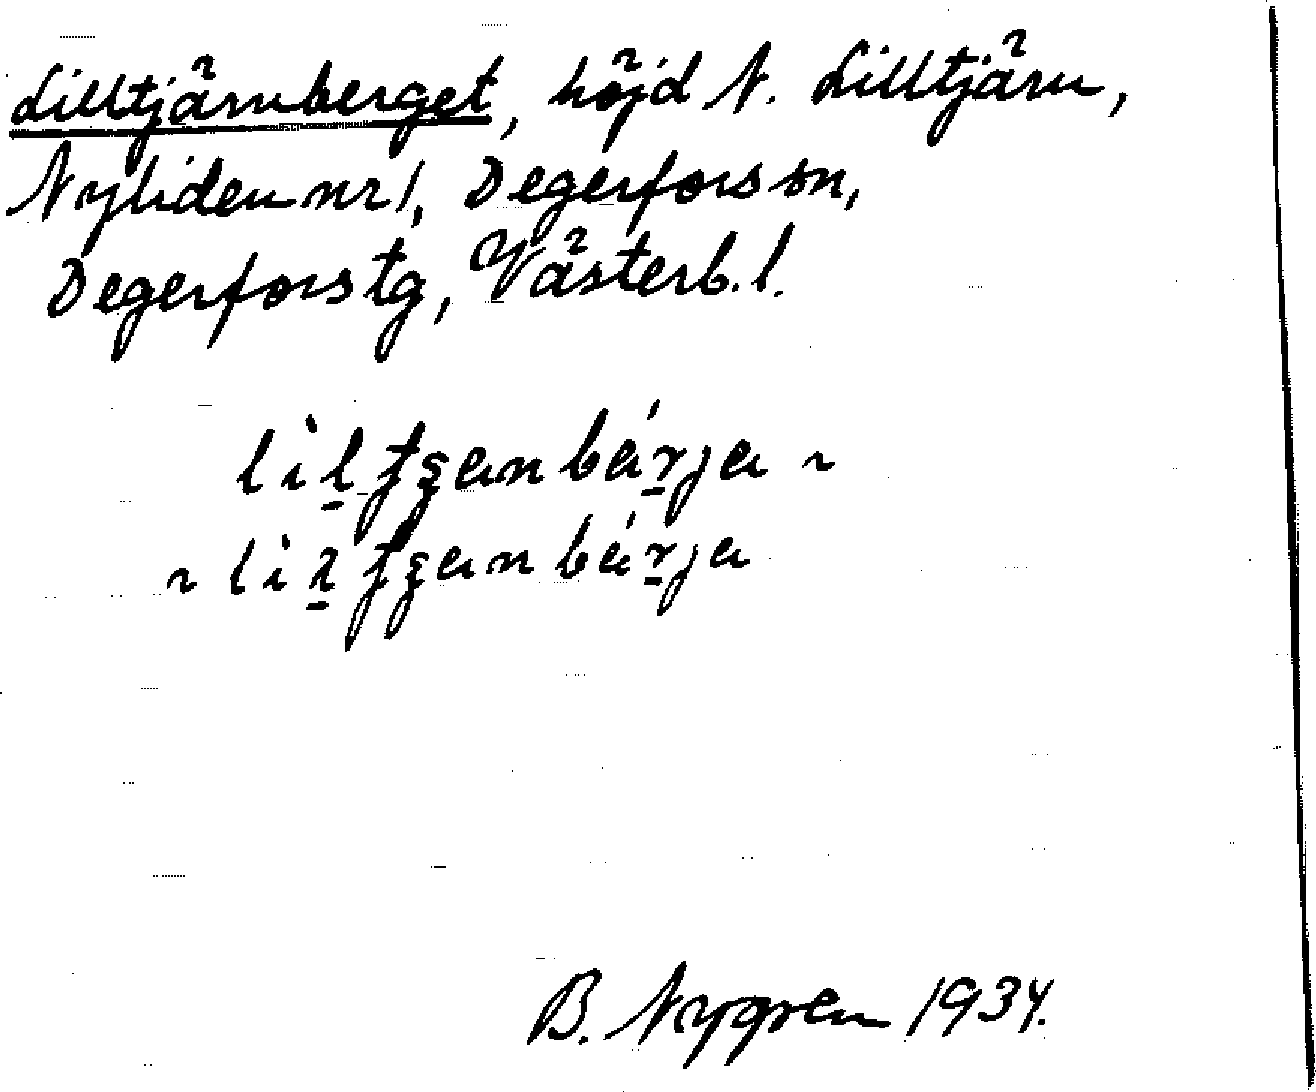 Lilltjärnberget, höjd N. Lilltjärn,
Nyliden nr 1, Degerfors sn,
Degerfors tg, Västerb. l.
B. Nygren 1934.